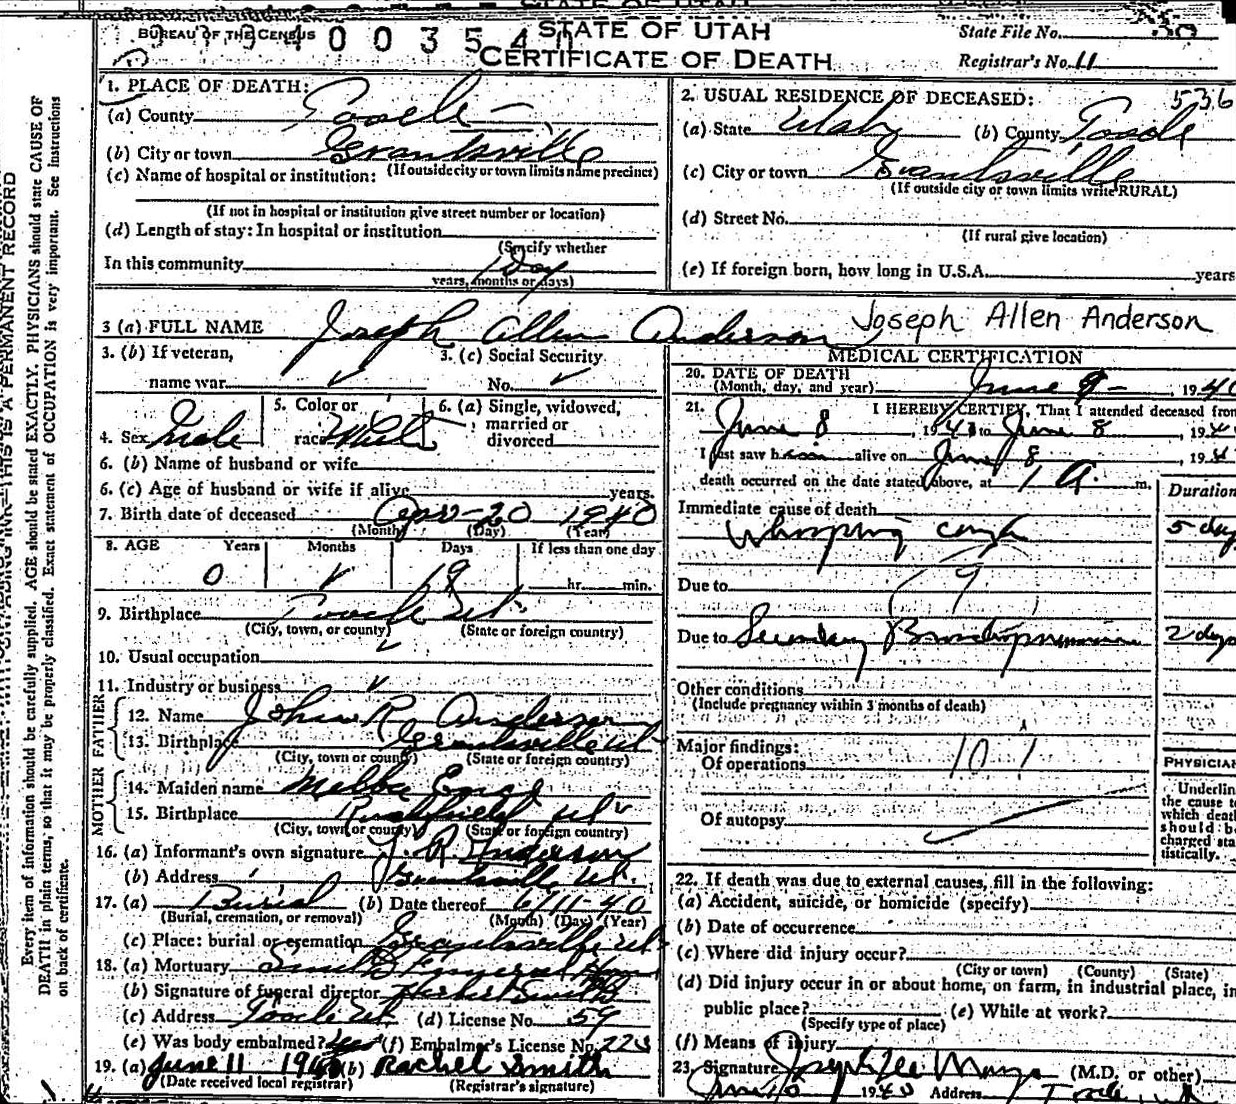 STATE OF UTAH
BUREAU OF THE CENSUS
STATE OF UTAH
State File No.
CERTIFICATE OF DEATH
Registrar's No. 11
1. PLACE OF DEATH:
(a) County Tooele
(b) City or town Grantsville
(If outside city or town limits name precinct)
(c) Name of hospital or institution:
(If not in hospital or institution give street number or location)
(d) Length of stay: In hospital or institution
(Specify whether
In this community 1 Day
years, months or days)
2. USUAL RESIDENCE OF DECEASED: 536
(a) State Utah (b) County Tooele
(c) City or town Grantsville
(If outside city or town limits write RURAL)
(d) Street No.
(If rural give location)
(e) If foreign born, how long in U.S.A. years
3 (a) FULL NAME Joseph Allen Anderson Joseph Allen Anderson
3. (b) If veteran, name war
3. (c) Social Security No.
4. Sex Male
5. Color or race White
6. (a) Single, widowed, married or divorced
6. (b) Name of husband or wife
6. (c) Age of husband or wife if alive years.
7. Birth date of deceased Apr - 20 1940
(Month) (Day) (Year)
8. AGE Years Months Days If less than one day
0 19 hr. min.
9. Birthplace Tooele Ut.
(City, town, or county) (State or foreign country)
10. Usual occupation
11. Industry or business
FATHER
12. Name John R Anderson
13. Birthplace Grantsville Ut
(City, town or county) (State or foreign country)
MOTHER
14. Maiden name Melba
15. Birthplace Ut
(City, town or county) (State or foreign country)
16. (a) Informant's own signature J. R. Anderson
(b) Address Grantsville Ut.
17. (a) Burial (b) Date thereof 6/11-40
(Burial, cremation, or removal) (Month) (Day) (Year)
(c) Place: burial or cremation Grantsville Ut
18. (a) Mortuary Funeral Home
(b) Signature of funeral director Herbert Smith
(c) Address Tooele Ut. (d) License No. 59
(e) Was body embalmed? Yes (f) Embalmer's License No.
19. (a) June 11 1940 (b) Rachel Smith
(Date received local registrar) (Registrar's signature)
MEDICAL CERTIFICATION
20. DATE OF DEATH
(Month, day, and year) June 9 - 1940
21. I HEREBY CERTIFY, That I attended deceased from
June 8, 1940 to June 8, 19
I last saw him alive on June 8, 19
death occurred on the date stated above, at 1 A. m.
Duration
Immediate cause of death
Whooping cough 5 days
Due to
Due to Secondary Bronchopneumonia 2 days
Other conditions
(Include pregnancy within 3 months of death)
Major findings:
Of operations
PHYSICIAN
Of autopsy
Underline
the cause to
which death
should be
charged sta-
tistically.
22. If death was due to external causes, fill in the following:
(a) Accident, suicide, or homicide (specify)
(b) Date of occurrence
(c) Where did injury occur?
(City or town) (County) (State)
(d) Did injury occur in or about home, on farm, in industrial place, in
public place? (e) While at work?
(Specify type of place)
(f) Means of injury
23. Signature (M.D. or other)
1940 Address Tooele, Ut
Every item of information should be carefully supplied. AGE should be stated EXACTLY. PHYSICIANS should state CAUSE OF
DEATH in plain terms, so that it may be properly classified. Exact statement of OCCUPATION is very important. See instructions
on back of certificate.
THIS IS A PERMANENT RECORD